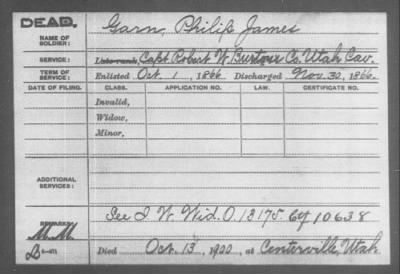 DEAD.
NAME OF SOLDIER: Garn, Philip James
SERVICE: Late rank, Capt Robert W. Burton's Co. Utah Cav.
TERM OF SERVICE: Enlisted Oct. 1, 1866. Discharged Nov. 30, 1866.
DATE OF FILING. CLASS. APPLICATION NO. LAW. CERTIFICATE NO.
Invalid,
Widow,
Minor,
ADDITIONAL SERVICES:
See I. W. Wid. O. 13175. Ctf 10638
REMARKS:
M.M.
Died Oct. 13, 1900, at Centerville, Utah